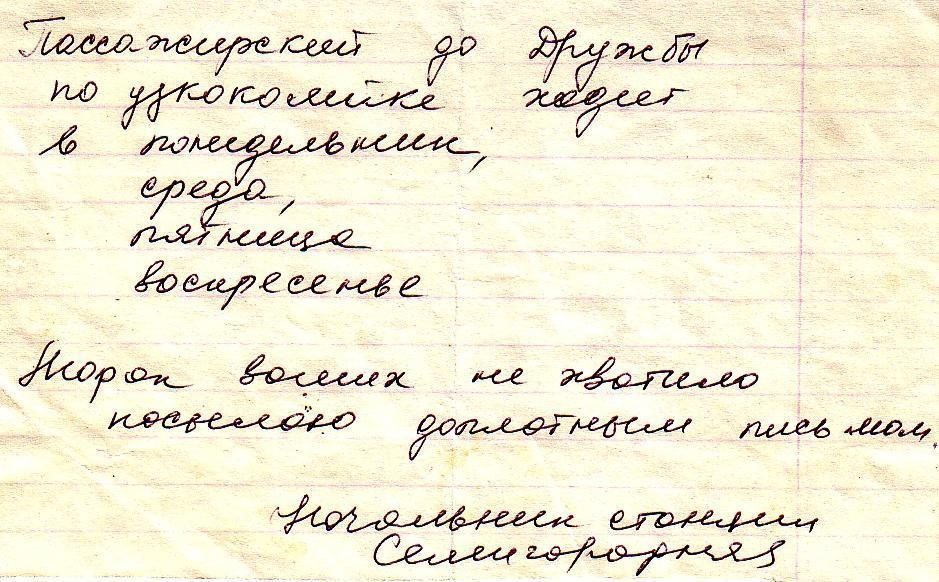 Пассажирский до Дружбы
по узкоколейке ходит
в понидельник,
среда,
пятница
воскресенье
Марок ваших не хватило
посылаю доплотным письмом.
Начальник станции
Семигородняя